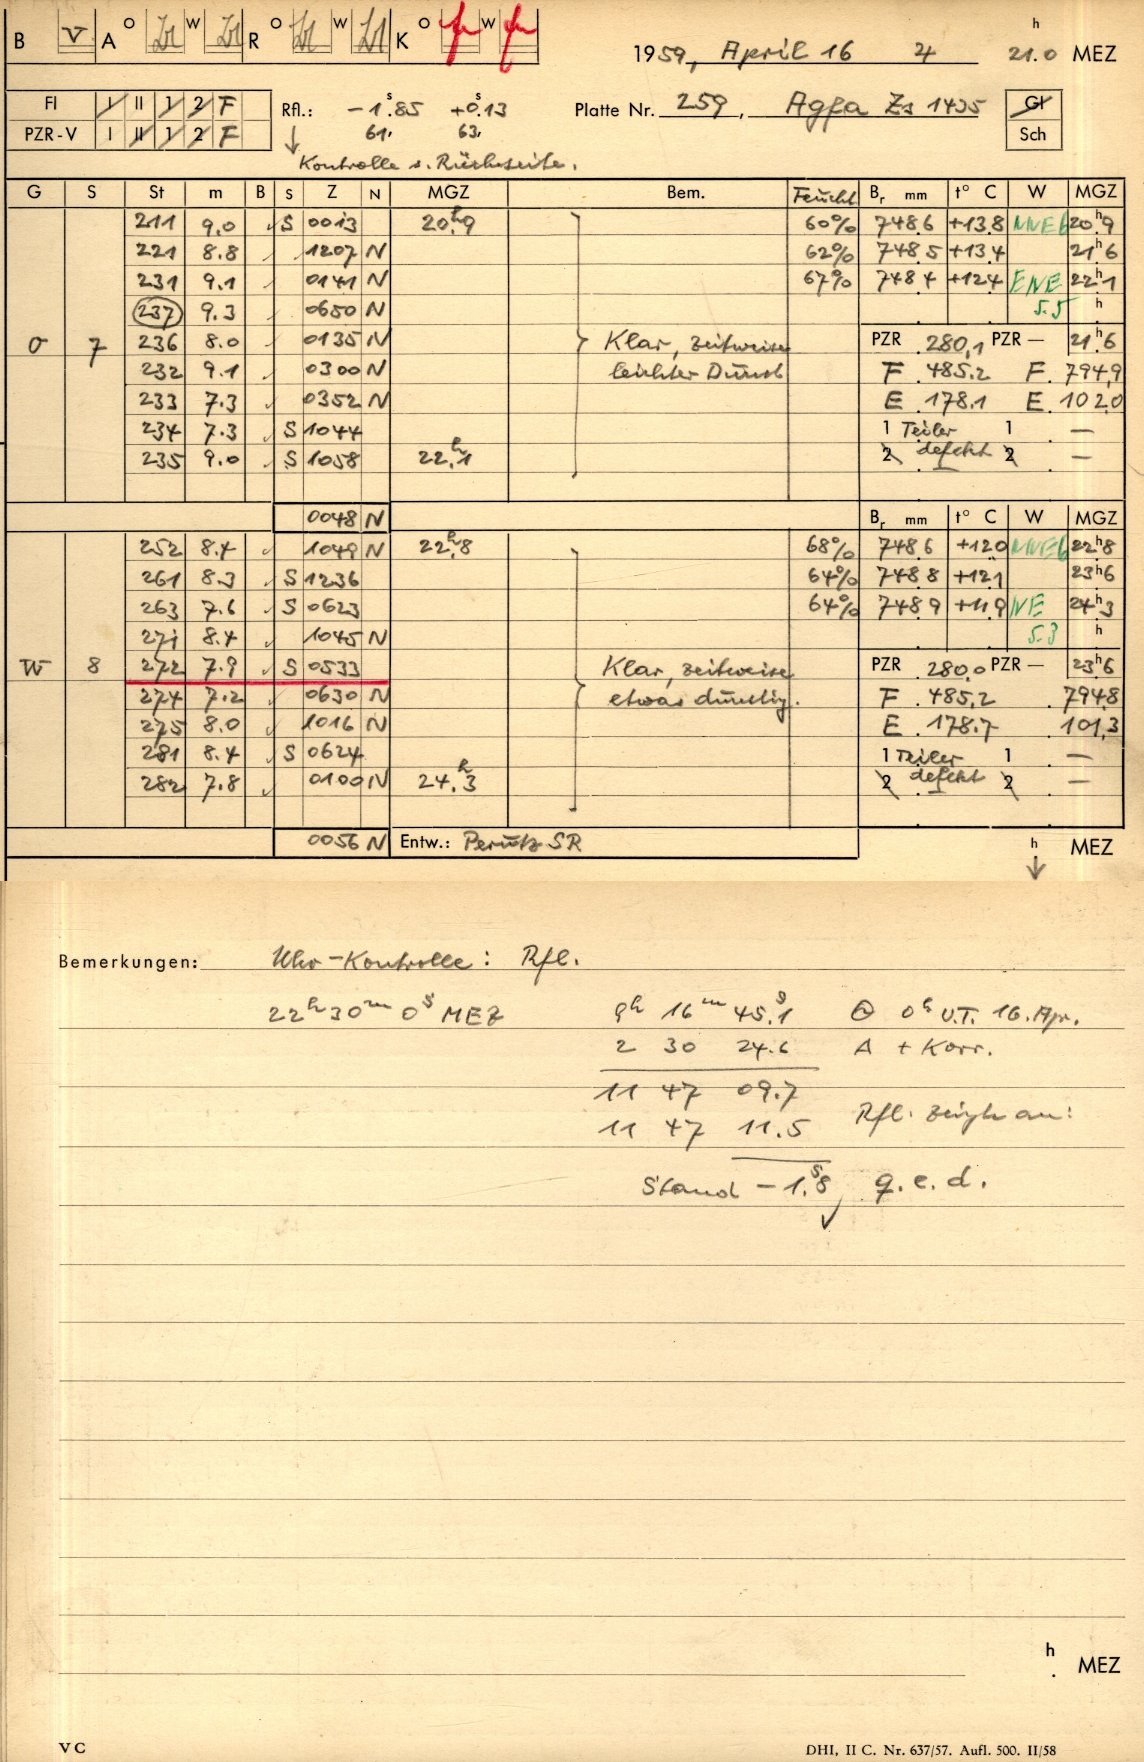 B V A O W R O W K O W
1959, April 16 4 21.0 h MEZ
Fl I II 1 2 F
PZR-V I II 1 2 F
Rfl.: −1ˢ.85 +0ˢ.13
61. 63.
↓ Kontrolle s. Rückseite.
Platte Nr. 259, Agfa Zs 1435
Gl
Sch
G S St m B S Z N MGZ Bem. Feucht Bᵣ mm t° C W MGZ
211 9.0 ✓ S 0013 20ʰ.9 60% 748.6 +13.8 NNE 6 20ʰ9
221 8.8 ✓ 1207 N 62% 748.5 +13.4 21ʰ6
231 9.1 ✓ 0141 N 67% 748.4 +12.4 ENE 22ʰ1
237 9.3 ✓ 0650 N 5.5 h
O 7 236 8.0 ✓ 0135 N Klar, zeitweise PZR 280,1 PZR — 21ʰ6
232 9.1 ✓ 0300 N leichter Dunst F 485.2 F 794,9
233 7.3 ✓ 0352 N E 178.1 E 102.0
234 7.3 S 1044 1 Teiler 1 —
235 9.0 ✓ S 1058 22ʰ.1 2 defekt 2 —
0048 N Bᵣ mm t° C W MGZ
252 8.4 ✓ 1049 N 22ʰ.8 68% 748.6 +12.0 NNE 6 22ʰ8
261 8.3 ✓ S 1236 64% 748.8 +12.1 23ʰ6
263 7.6 ✓ S 0623 64% 748.9 +11.9 NE 24ʰ3
271 8.4 ✓ 1045 N 5.3 h
W 8 272 7.9 ✓ S 0533 Klar, zeitweise PZR 280.0 PZR — 23ʰ6
274 7.2 0630 N etwas dunstig. F 485.2 794.8
275 8.0 ✓ 1016 N E 178.7 101,3
281 8.4 ✓ S 0624 1 Teiler 1 —
282 7.8 ✓ 0100 N 24ʰ.3 2 defekt 2 —
0056 N Entw.: Perutz SR h MEZ
↓
Bemerkungen: Uhr-Kontrolle: Rfl.
22ʰ 30ᵐ 0ˢ MEZ 9ʰ 16ᵐ 45ˢ.1 Θ 0ʰ U.T. 16. Apr.
2 30 24.6 Δ + Korr.
11 47 09.7
11 47 11.5 Rfl. zeigte an:
Stand −1ˢ.8 ✓ q.e.d.
h
. MEZ
V C DHI, II C. Nr. 637/57. Aufl. 500. II/58